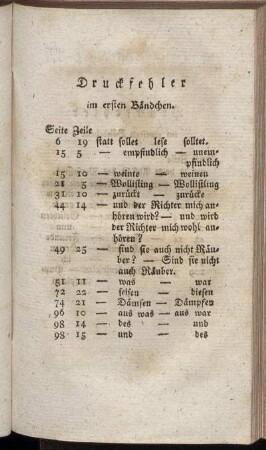 Druckfehler
im ersten Bändchen.
Seite Zeile
6 19 statt sollet lese solltet.
15 5 — empfindlich — unem-
pfindlich
15 10 — weinte — weinen
21 5 — Wollisling — Wollisling
31 10 — zurückt — zurücke
44 14 — und der Richter mich an-
hören wird? — und wird
der Richter mich wohl an-
hören?
49 25 — sind sie auch nicht Räu-
ber? — Sind sie nicht
auch Räuber.
51 11 — was — war
72 22 — seisen — diesen
74 21 — Dämsen — Dämpfen
96 10 — aus was — aus war
98 14 — des — und
98 15 — und — des